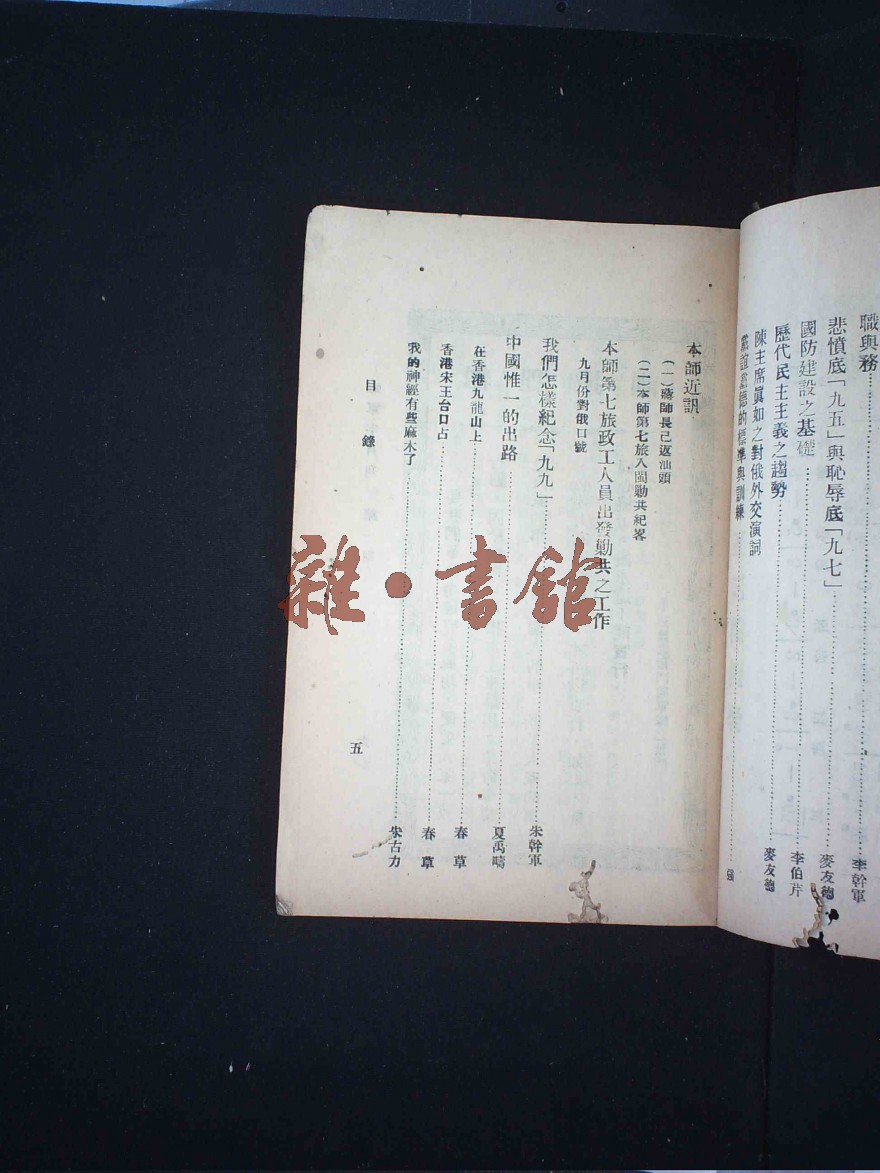 職與務……李幹軍
悲憤底「九五」與恥辱底「九七」……麥友德
國防建設之基礎……李伯芹
歷代民主主義之趨勢……麥友德
陳主席眞如之對俄外交演詞
黨誼黨德的標準與訓練……強
本師近訊
(一)蔣師長已返汕頭
(二)本師第七旅入閩勦共紀畧
本師第七旅政工人員出發勦共之工作
九月份對俄口號
我們怎樣紀念「九九」……朱幹軍
中國惟一的出路……夏禹疇
在香港九龍山上……春草
香港宋王台口占……春草
我的神經有些麻木了……朱古力
目錄
五
雜·書館